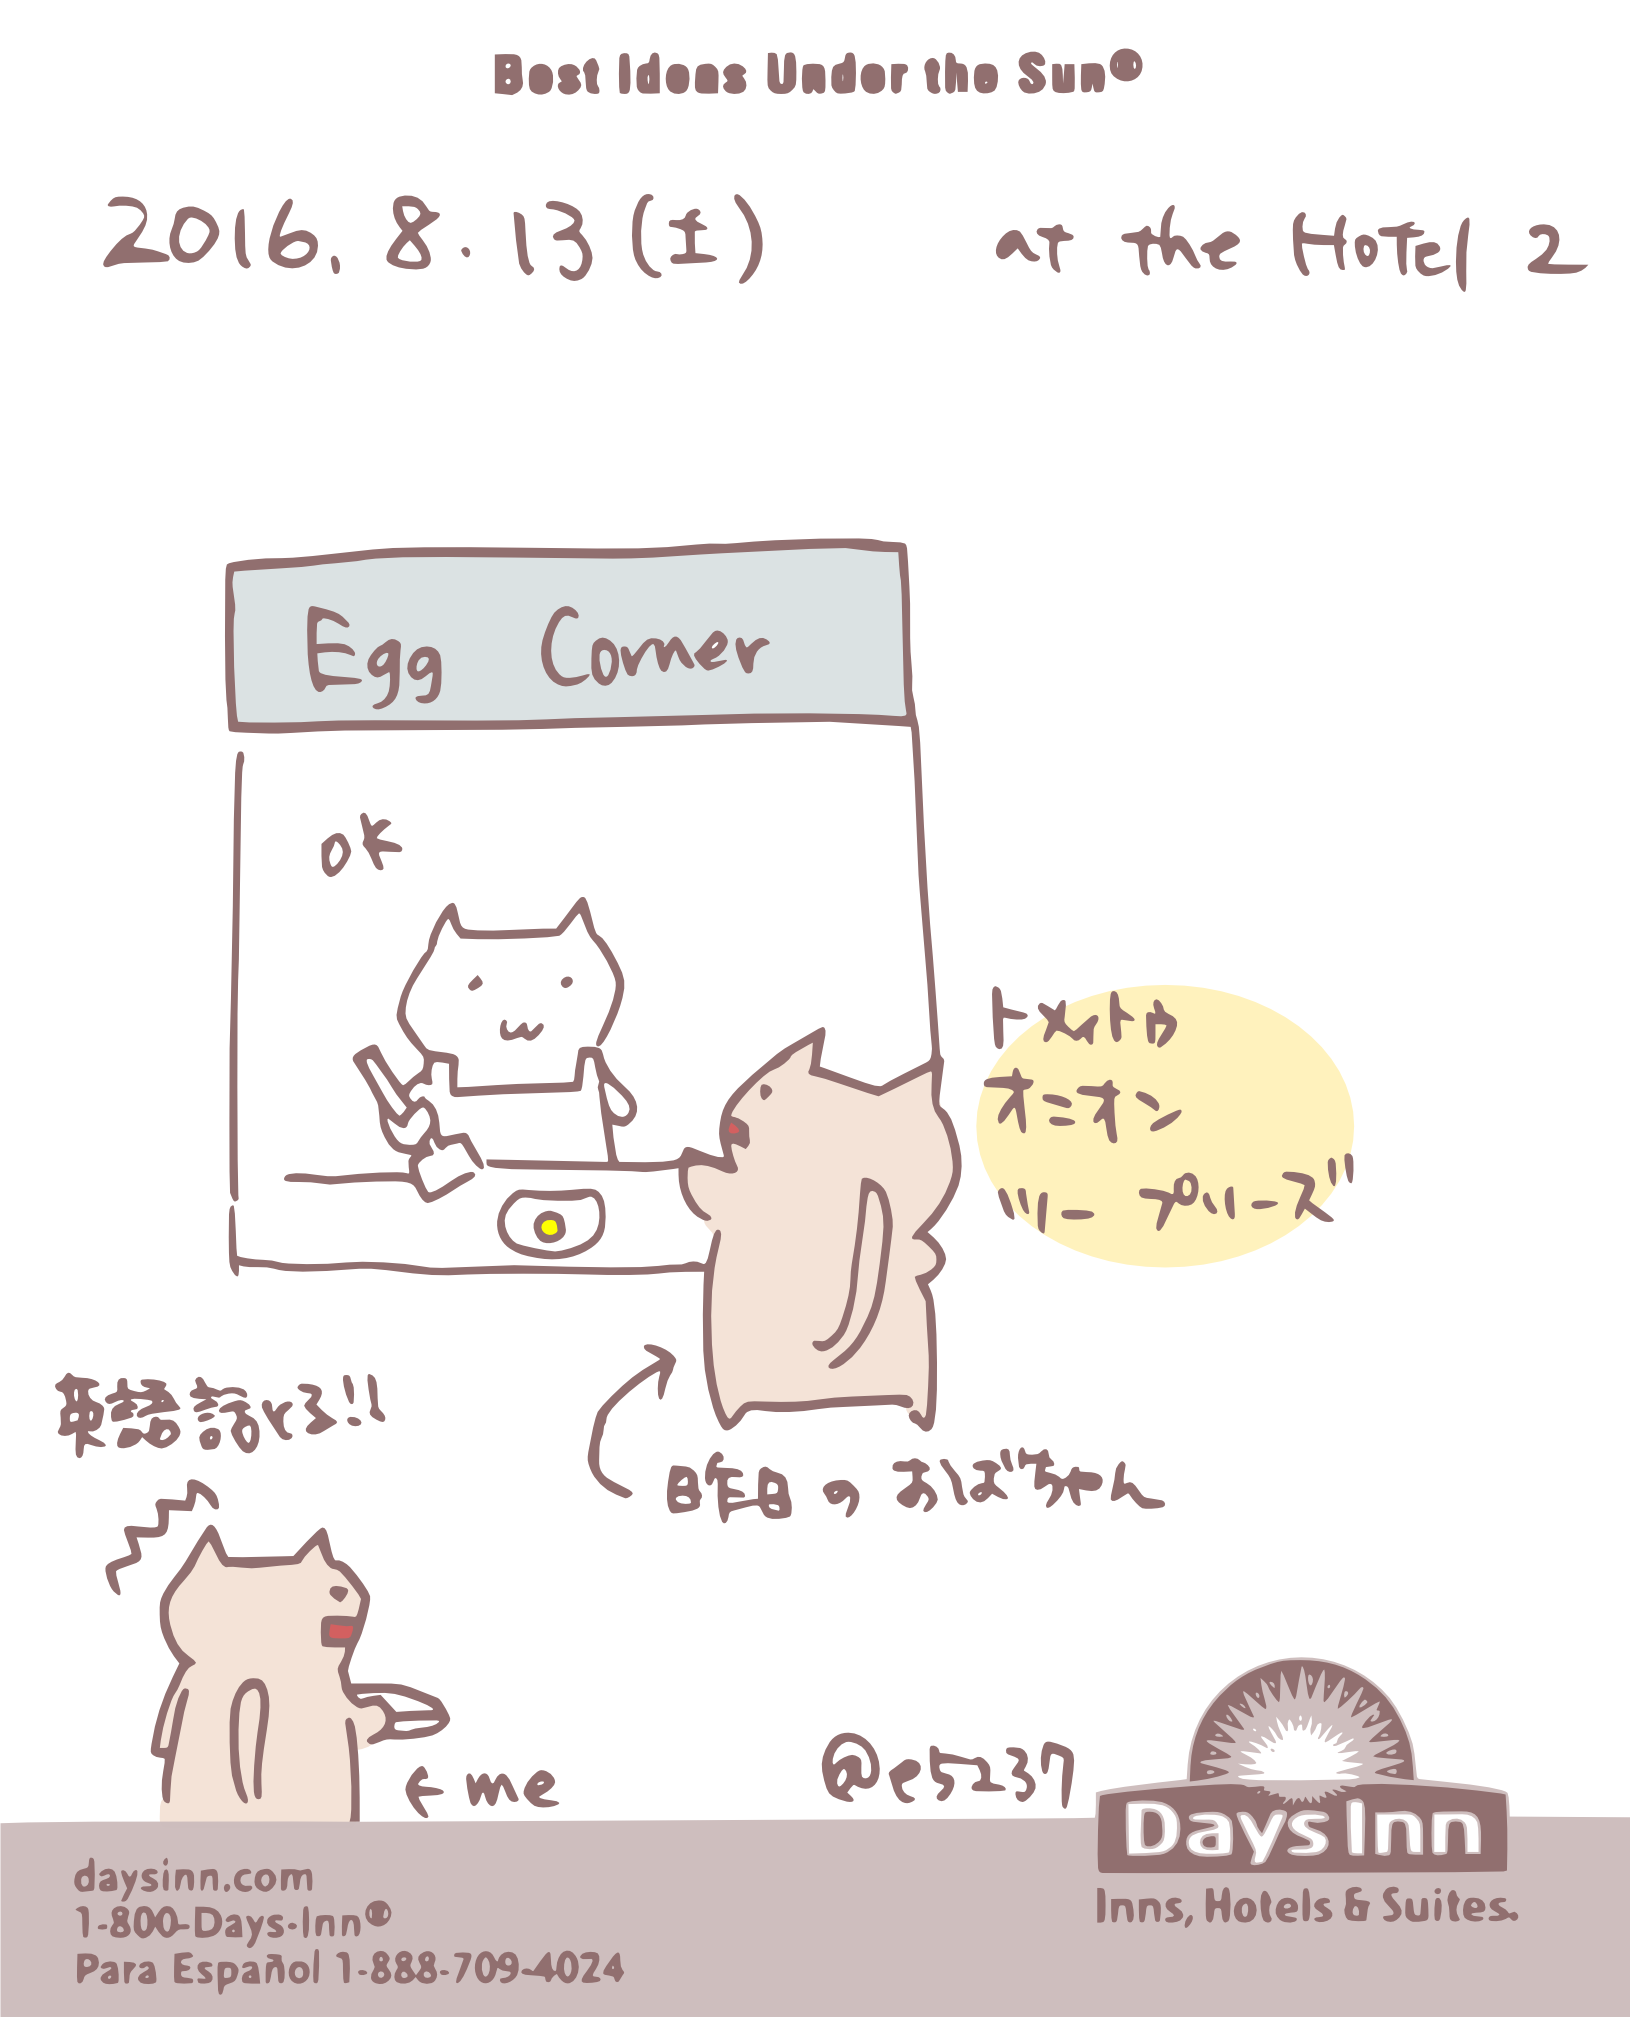 Best Ideas Under the Sun®
2016.8.13(土)
at the Hotel 2
Egg Corner
OK
トメイトゥ
オニオン
バリー プリーズ
英語話してる!!
昨日のおばちゃん
←me
@e5237
DaysInn
Inns, Hotels & Suites.
daysinn.com
1-800-Days-Inn®
Para Español 1-888-709-4024